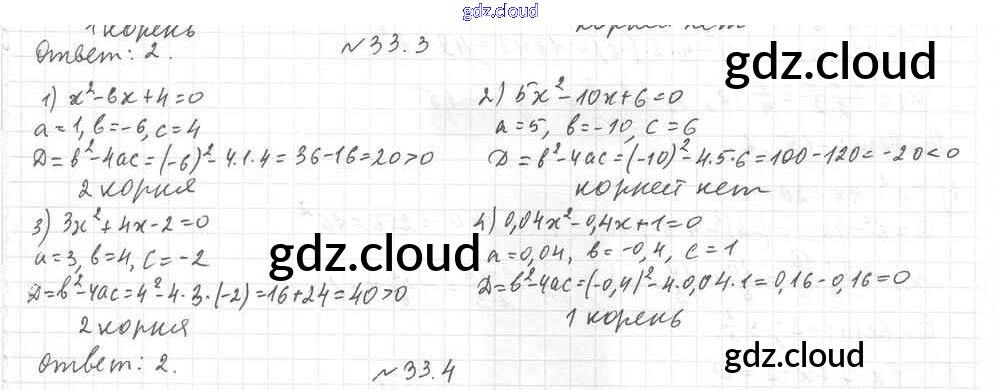 gdz.cloud
1 корень
корней нет
Ответ: 2.
№33.3
gdz.cloud
1) x²-6x+4=0
a=1, b=-6, c=4
D=b²-4ac=(-6)²-4.1.4=36-16=20>0
2 корня
2) 5x²-10x+6=0
a=5, b=-10, c=6
D=b²-4ac=(-10)²-4.5.6=100-120=-20<0
корней нет
3) 3x²+4x-2=0
a=3, b=4, c=-2
D=b²-4ac=4²-4.3.(-2)=16+24=40>0
2 корня
gdz.cloud
4) 0,04x²-0,4x+1=0
a=0,04, b=-0,4, c=1
D=b²-4ac=(-0,4)²-4.0,04.1=0,16-0,16=0
1 корень
Ответ: 2.
№33.4
gdz.cloud